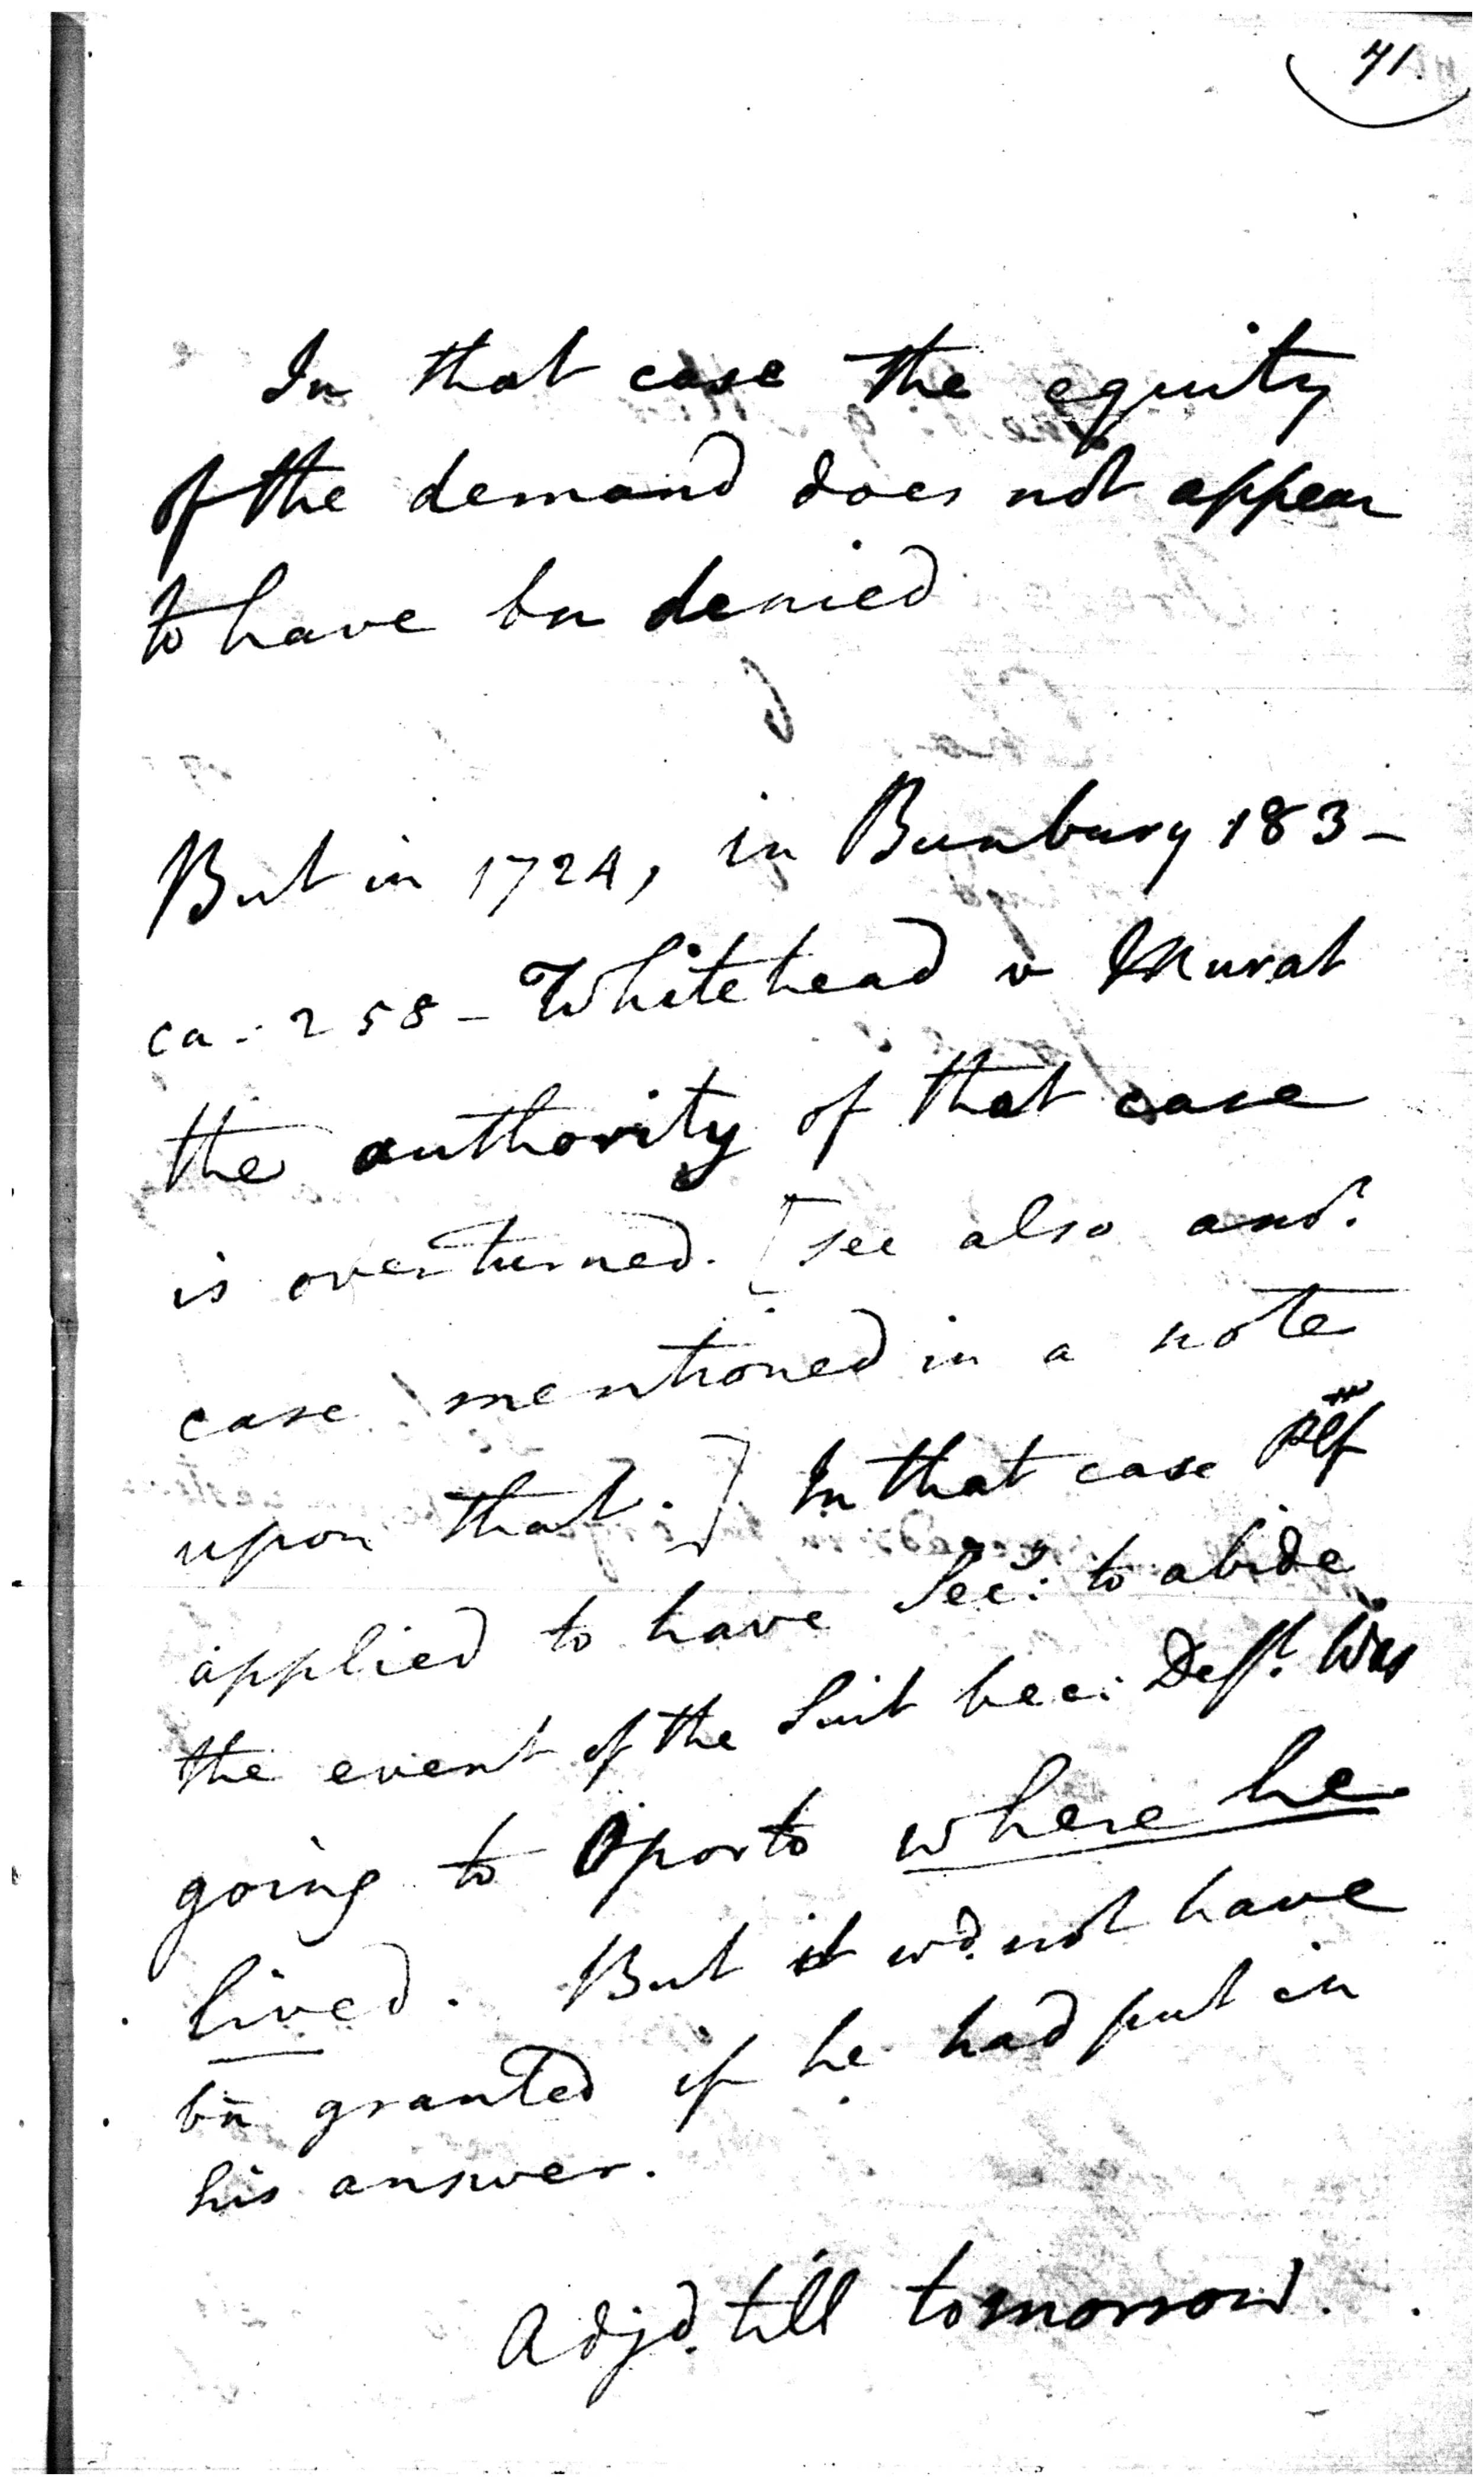 41.
In that case the equity
of the demand does not appear
to have bn denied
But in 1724, in Bunbury 183 -
ca. 258 - Whitehead v Murat
the authority of that case
is overturned. [see also anor.
case mentioned in a note
upon that.] In that case plf
applied to have Secy: to abide
the event of the Suit bec: Deft. was
going to Oporto where he
lived. But it wd. not have
bn granted if he had put in
his answer.
Adjd. till tomorrow.